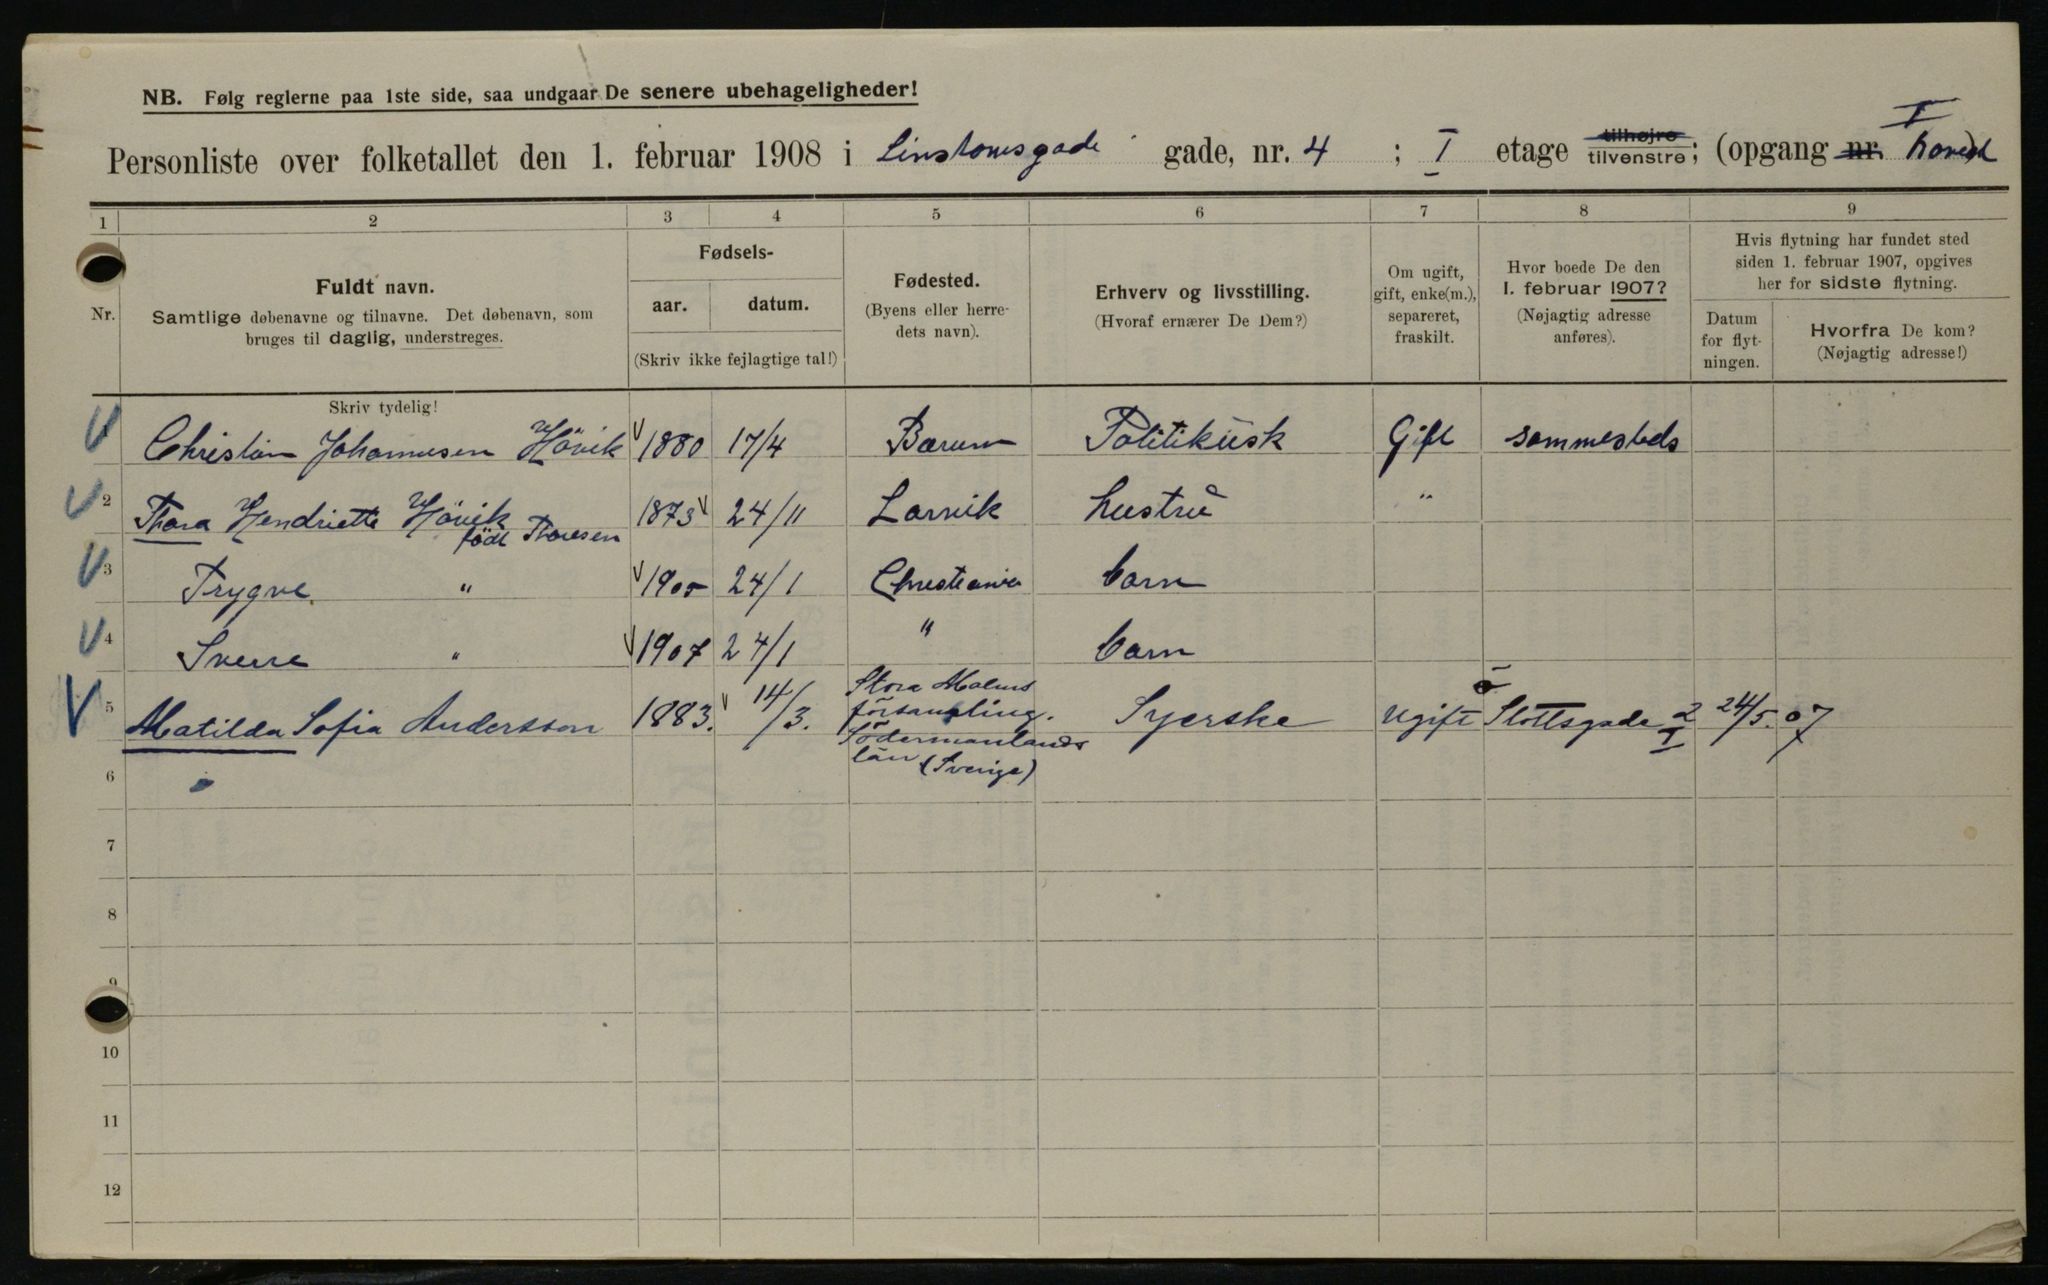 NB. Følg reglerne paa 1ste side, saa undgaar De senere ubehageligheder!
I
Personliste over folketallet den 1. februar 1908 i Linstowsgade gade, nr. 4 ; I etage tilhøjre tilvenstre; (opgang nr.
1 2 3 4 5 6 7 8 9
Nr.
Fuldt navn.
Samtlige døbenavne og tilnavne. Det døbenavn, som
bruges til daglig, understreges.
Fødsels-
aar. datum.
(Skriv ikke fejlagtige tal!)
Fødested.
(Byens eller herre-
dets navn).
Erhverv og livsstilling.
(Hvoraf ernærer De Dem?)
Om ugift,
gift, enke(m.),
separeret,
fraskilt.
Hvor boede De den
1. februar 1907?
(Nøjagtig adresse
anføres).
Hvis flytning har fundet sted
siden 1. februar 1907, opgives
her for sidste flytning.
Datum
for flyt-
ningen.
Hvorfra De kom?
(Nøjagtig adresse!)
Skriv tydelig!
Christian Johannesen Hövik 1880 17/4 Bærum Politikusk Gift sammesteds
2 Thora Henriette Hövik 1873 24/11 Larvik hustru "
födt Thoresen
3 Trygve " 1900 24/1 Christiania barn
4 Sverre " 1907 24/1 " barn
5 Matilda Sofia Andersson 1883. 14/3. Stora Malms
församling.
Södermanlands
län (Sverige)
Syerske ugift Slottsgade 2 I 24/5. 07
6
7
8
9
10
11
12